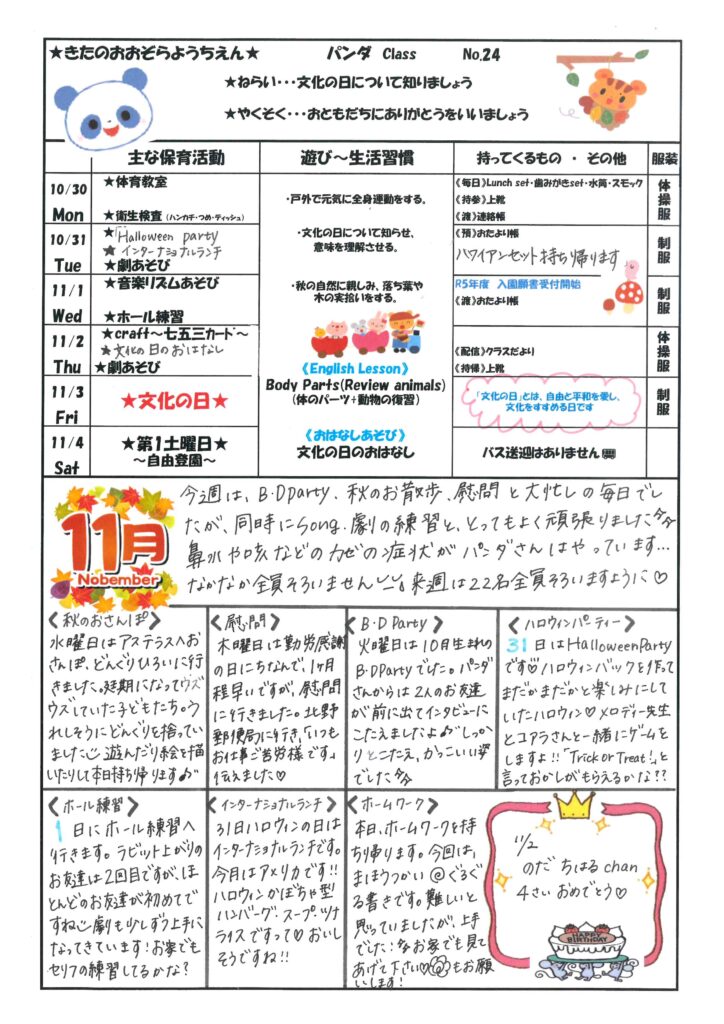 ★きたのおおぞらようちえん★ パンダ Class No.24
★ねらい・・・文化の日について知りましょう
★やくそく・・・おともだちにありがとうをいいましょう
主な保育活動 遊び～生活習慣 持ってくるもの ・ その他 服装
10/30 Mon
★体育教室
★衛生検査(ハンカチ・つめ・ティッシュ)
10/31 Tue
★「Halloween party
★インターナショナルランチ
★劇あそび
11/1 Wed
★音楽リズムあそび
★ホール練習
11/2 Thu
★craft～七五三カード～
★文化の日のおはなし
★劇あそび
11/3 Fri
★文化の日★
11/4 Sat
★第1土曜日★
～自由登園～
・戸外で元気に全身運動をする。
・文化の日について知らせ、
意味を理解させる。
・秋の自然に親しみ、落ち葉や
木の実拾いをする。
《English Lesson》
Body Parts(Review animals)
(体のパーツ+動物の復習)
《おはなしあそび》
文化の日のおはなし
《毎日》Lunch set・歯みがきset・水筒・スモック
《持参》上靴
《渡》連絡帳
体操服
《預》おたより帳
ハワイアンセット持ち帰ります
制服
R5年度 入園願書受付開始
《渡》おたより帳
制服
《配信》クラスだより
《持帰》上靴
体操服
「文化の日」とは、自由と平和を愛し、
文化をすすめる日です
制服
バス送迎はありません
11月
Nobember
今週は、B・Dparty、秋のお散歩、慰問と大忙しの毎日でし
たが、同時にSong、劇の練習と、とってもよく頑張りました
鼻水や咳などのカゼの症状がパンダさんはやっています…
なかなか全員そろいません 来週は22名全員そろいますように♡
〈秋のおさんぽ〉
水曜日はアステラスへお
さんぽ。どんぐりひろいに行
きました。延期になってウズ
ウズしていた子どもたち。う
れしそうにどんぐりを拾ってい
ました 遊んだり絵を描
いたりして本日持ち帰ります♪
〈慰問〉
木曜日は勤労感謝
の日にちなんで、1ヶ月
程早いですが、慰問
に行きました。北野
郵便局に行き、「いつも
お仕事ご苦労様です」
伝えました♡
〈B・D Party〉
火曜日は10月生まれの
B・DPartyでした。パンダ
さんからは2人のお友達
が前に出てインタビューに
こたえましたよ♪しっか
りとこたえ、かっこいい姿
でした
〈ハロウィンパーティー〉
31日はHalloweenParty
です♡ハロウィンバックを作って
まだかまだかと楽しみにして
いたハロウィン♡メロディー先生
とコアラさんと一緒にゲームを
しますよ!!「Trick or Treat!」と
言っておかしがもらえるかな??
〈ホール練習〉
1日にホール練習へ
行きます。ラビット上がりの
お友達は2回目ですが、ほ
とんどのお友達が初めてで
すね 劇も少しずつ上手に
なってきています!お家でも
セリフの練習してるかな?
〈インターナショナルランチ〉
31日ハロウィンの日は
インターナショナルランチです。
今月はアメリカです!!
ハロウィンかぼちゃ型
ハンバーグ、スープ、ツナ
ライスですって♡おいし
そうですね!!
〈ホームワーク〉
本日、ホームワークを持
ち帰ります。今回は、
まほうつかい@ぐるぐ
る書きです。難しいと
思っていましたが、上手
でした!お家でも見て
あげて下さい♡もお願
いします!
11/2
のだ ちはる chan
4さい おめでとう♡
HAPPY BIRTHDAY